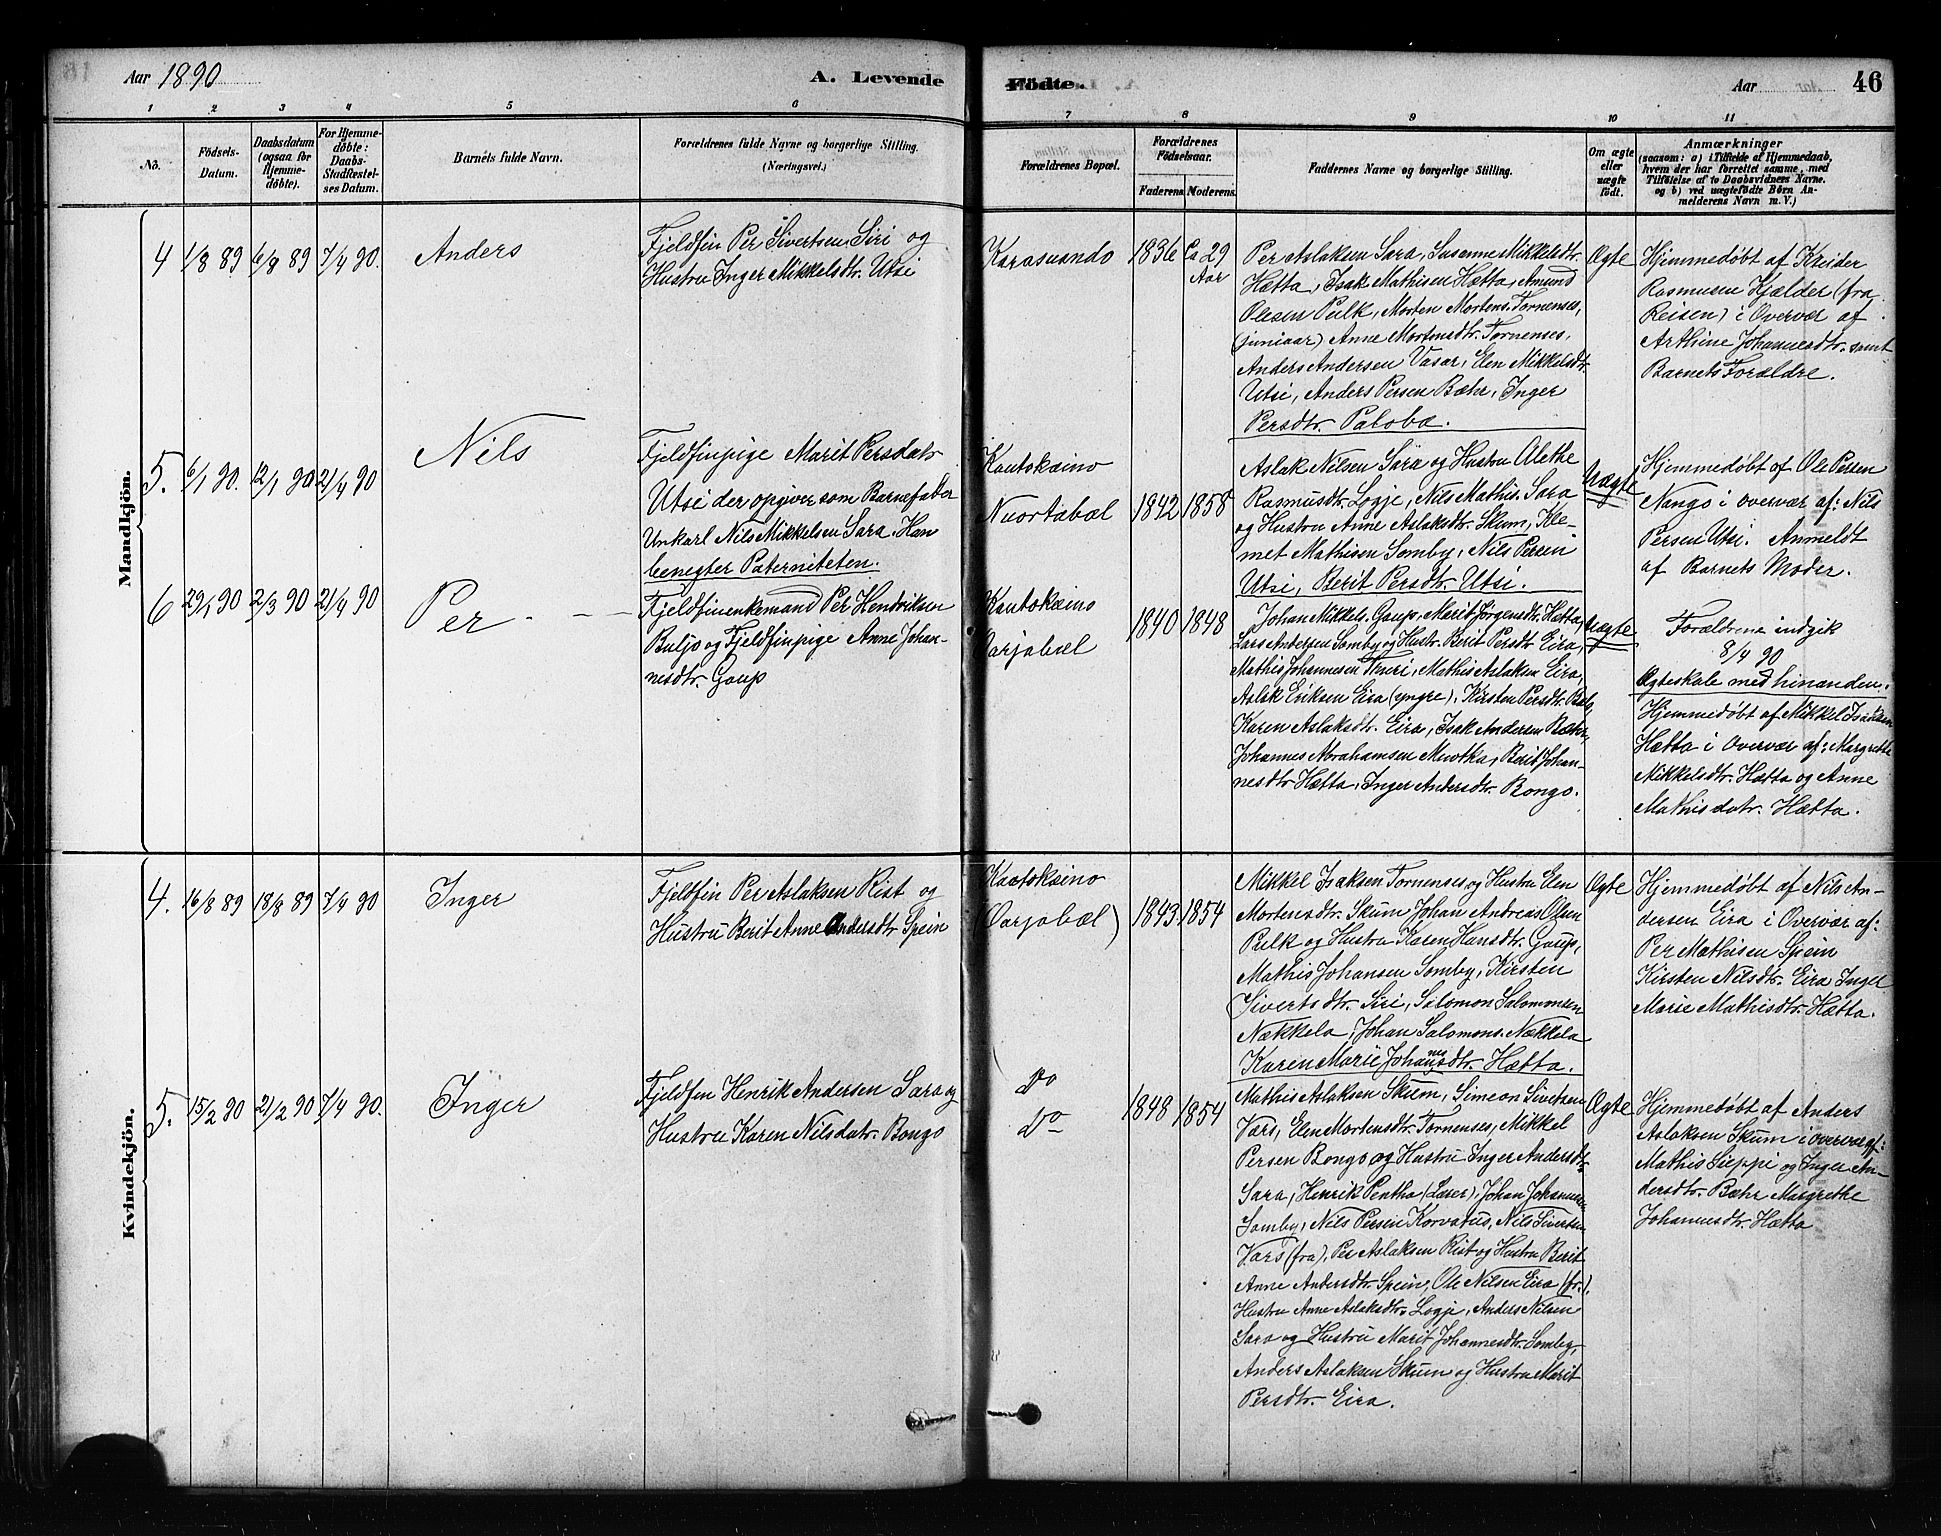 Aar 1890
A. Levende
Födte.
Aar
46
1 2 3 4 5 6 7 8 9 10 11
No.
Födsels-Datum.
Daabsdatum (ogsaa for Hjemmedöbte).
For Hjemmedöbte: Daabs-Stadfæstelses Datum.
Barnets fulde Navn.
Forældrenes fulde Navne og borgerlige Stilling.
(Næringsvei.)
Forældrenes Bopæl.
Forældrenes Födselsaar.
Faderens. Moderens.
Faddernes Navne og borgerlige Stilling.
Om ægte eller uægte födt.
Anmærkninger
(saasom: a) i Tilfælde af Hjemmedaab, hvem der har forrettet samme, med Tilföielse af to Daabsvidners Navne. og b) ved uægtefödte Börn Anmelderens Navn m. V.)
Mandkjön.
4 1/8 89 6/8 89 7/4 90. Anders
Fjeldfin Per Sivertsen Siri og
Hustru Inger Mikkelsdtr. Utsi
Karasuando 1836 Ca 29 Aar
Per Aslaksen Sara, Susanne Mikkelsdtr.
Hætta, Isak Mathisen Hætta, Amund
Olesen Pulk, Morten Mortens. Tornenses,
(juniaar) Anne Mortensdtr. Tornenses,
Anders Andersen Vasar, Elen Mikkelsdtr.
Utsi, Anders Persen Bæhr, Inger
Persdtr. Paloba.
Ægte
Hjemmedøbt af Kreider
Rasmusen Hjælder (fra
Reisen) i Overvær af
Arthine Johannesdtr. samt
Barnets Forældre.
5. 6/1 90. 12/1 90 21/4 90 Nils
Fjeldfinpige Marit Persdatr
Utsi der opgiver som Barnefader
Unkarl Nils Mikkelsen Sara. Han
benegter Paterniteten.
Kautokæino
Nuortabæl 1842 1858
Aslak Nilsen Sara og Hustru Alethe
Rasmusdtr. Logje, Nils Mathis. Sara
og Hustru Anne Aslaksdtr. Skum, Kle-
met Mathisen Somby, Nils Persen
Utsi, Berit Persdtr. Utsi.
Uægte
Hjemmedøbt af Ole Persen
Nango i overvær af: Nils
Persen Utsi. Anmeldt
af Barnets Moder.
6 29/1 90 2/3 90 21/4 90 Per
Fjeldfinenkemand Per Hendriksen
Buljo og Fjeldfinpige Anne Johan-
nesdtr. Gaup
Kautokæino
Oarjabæl 1840 1848
Johan Mikkels. Gaup, Marit Jørgensdtr. Hætta,
Lars Andersen Somby og Hustr. Berit Persdtr. Eira,
Mathis Johannesen Thuri, Mathis Aslaksen Eira,
Aslak Eriksen Eira (yngre), Kirsten Persdtr.
Karen Aslaksdtr. Eira, Isak Andersen Bæhr,
Johannes Abrahamsen Muotka, Berit Johan-
nesdtr Hætta, Inger Andersdtr. Bongo.
Uægte
Forældrene indgik
8/4 90
Ægteskab med hinanden.
Hjemmedøbt af Mikkel Isaksen
Hætta i Overvær af: Margrethe
Mikkelsdtr. Hætta og Anne
Mathisdatr. Hætta.
Kvindekjön.
4. 16/8 89 18/8 89 7/4 90 Inger
Fjeldfin Per Aslaksen Rist og
Hustru Berit Anne Andersdtr Spein
Kautokæino
(Oarjabæl) 1843 1854
Mikkel Isaksen Tornenses og Hustru Elen
Mortensdtr. Skum, Johan Andreas Olsen
Pulk og Hustru Karen Hansdtr. Gaup,
Mathis Johansen Somby, Kirsten
Sivertsdtr. Siri, Salomon Salomonsen
Nækkela, Johan Salomons. Nækkela
Karen Marie Johannesdtr. Hætta.
Ægte
Hjemmedøbt af Nils An-
dersen Eira i Overvær af:
Per Mathisen Spein
Kirsten Nilsdtr. Eira Inger
Marie Mathisdtr. Hætta.
5. 15/2 90 21/2 90 7/4 90. Inger
Fjeldfin Henrik Andersen Sara og
Hustru Karen Nilsdatr. Bongo
Do
Do 1848 1854
Mathis Aslaksen Skum, Simeon Sivertsen
Vars, Elen Mortensdtr. Tornenses, Mikkel
Persen Bongo og Hustru Inger Andersdtr
Sara, Henrik Pentha (Læser), Johan Johannesen
Somby, Nils Persen Korvatus, Nils Sivertsen
Vars (fra), Per Aslaksen Rist og Hustru Berit
Anne Andersdtr. Spein, Ole Nilsen Eira (fr.).
Hustru Anne Aslaksdtr. Logje, Anders Nilsen
Sara og Hustru Marit Johannesdtr. Somby,
Anders Aslaksen Skum og Hustru Marit
Persdtr. Eira.
Ægte
Hjemmedøbt af Anders
Aslaksen Skum i overvær af:
Mathis Sieppi og Inger An-
dersdtr. Bæhr Margrethe
Johannesdtr. Hætta